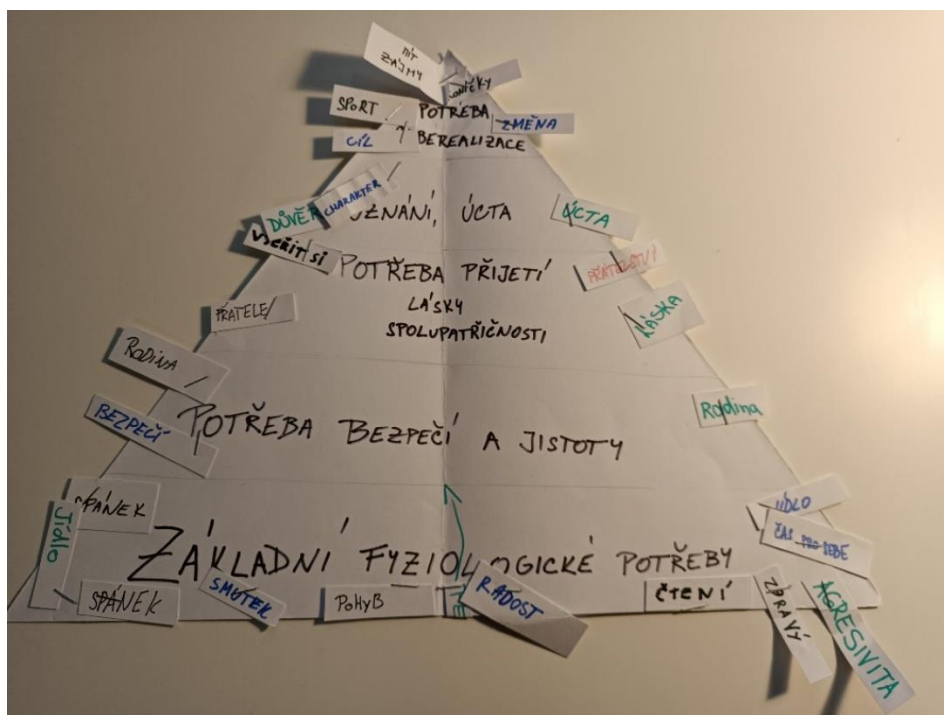 MÍT
ZÁJMY
SPORT
POTŘEBA
ZMĚNA
CÍL
BEREALIZACE
DŮVĚR
CHARAKTER
UZNÁNÍ, ÚCTA
ÚCTA
VĚŘIT SI
POTŘEBA PŘIJETÍ
PŘÁTELSTVÍ
LÁSKY
SPOLUPATŘIČNOSTI
PŘÁTELÉ
LÁSKA
RODINA
Rodina
BEZPEČÍ
POTŘEBA BEZPEČÍ A JISTOTY
SPÁNEK
JÍDLO
Jídlo
ČAS PRO SEBE
ZÁKLADNÍ FYZIOLOGICKÉ POTŘEBY
SPÁNEK
SMUTEK
POHYB
RADOST
ČTENÍ
ZDRAVÝ
AGRESIVITA